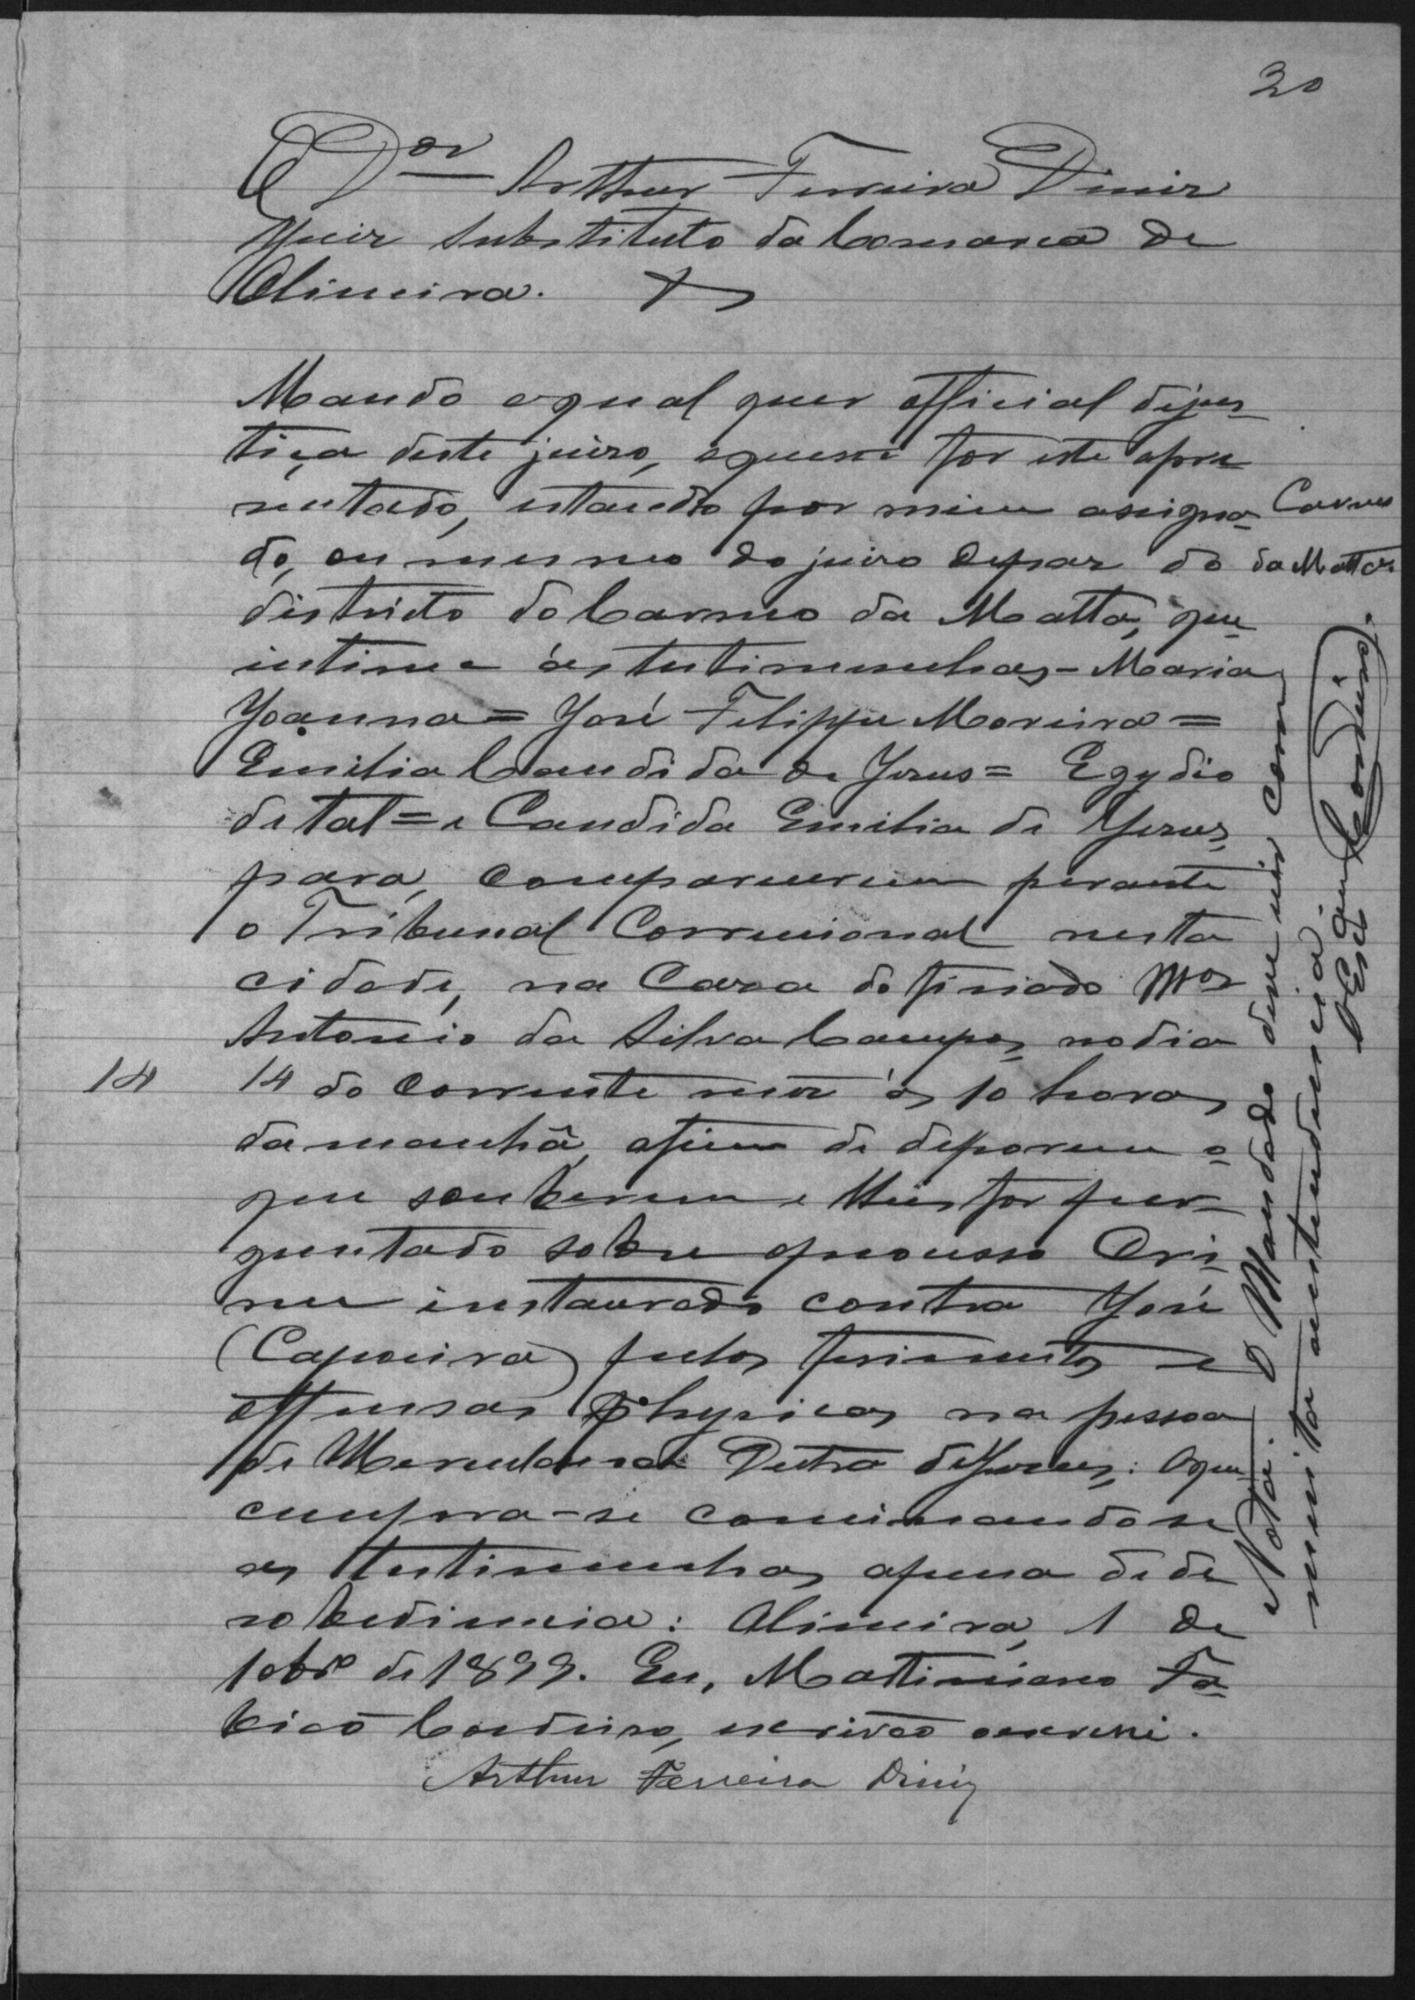 20
O Dor Arthur Ferreira Diniz
Juiz Substituto da Comarca de
Oliveira.
Mando a qual quer official de jus-
tiça deste juizo, a quem for este apre
sentado, estando por mim assigna-
do, ou mesmo do juizo de paz do
districto do Carmo da Matta, que
intime as testimunhas - Maria
Joanna = José Felippe Moreira =
Emilia Candida de Jesus = Egydio
de tal = e Candida Emilia de Jesus,
para, comparecerem perante
o Tribunal Correccional nesta
cidade, na Casa do finado Mor
Antonio da Silva Campos, no dia
14 do corrente mez ás 10 horas
da manhã, afim de deporem o
que souberem e lhes for per-
guntado sobre o processo Cri-
me instaurado contra José
Capoeira pelos ferimentos e
offensas physicas na pessoa
de Herculana Dutra de Jesus: O que
cumpra-se comminando se
as testimunhas a pena de de
sobediencia: Oliveira, 1 de
10bro de 1899. Eu, Martiniano Fa-
bicio Cordeiro, escrivão o escrevi.
Arthur Ferreira Diniz
14
Carmo
da Matta
Nota: O Mandado deve vir com
muita antecedencia.
O Escam Cordeiro.